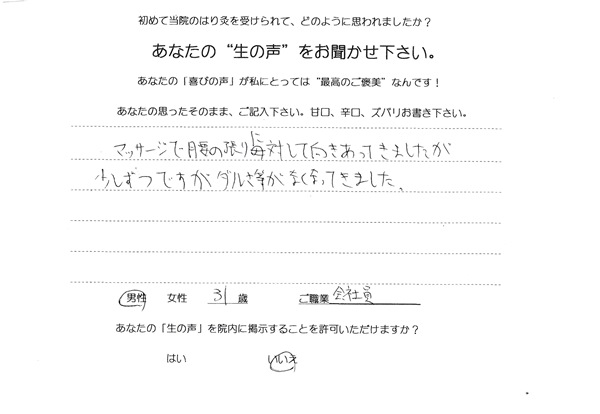 初めて当院のはり灸を受けられて、どのように思われましたか？
あなたの“生の声”をお聞かせ下さい。
あなたの「喜びの声」が私にとっては“最高のご褒美”なんです！
あなたの思ったそのまま、ご記入下さい。甘口、辛口、ズバリお書き下さい。
マッサージで腰の張り対して向きあってきましたが
少しずつですがダルさ等がなくなってきました。
男性 女性 31歳 ご職業 会社員
あなたの「生の声」を院内に掲示することを許可いただけますか？
はい いいえ